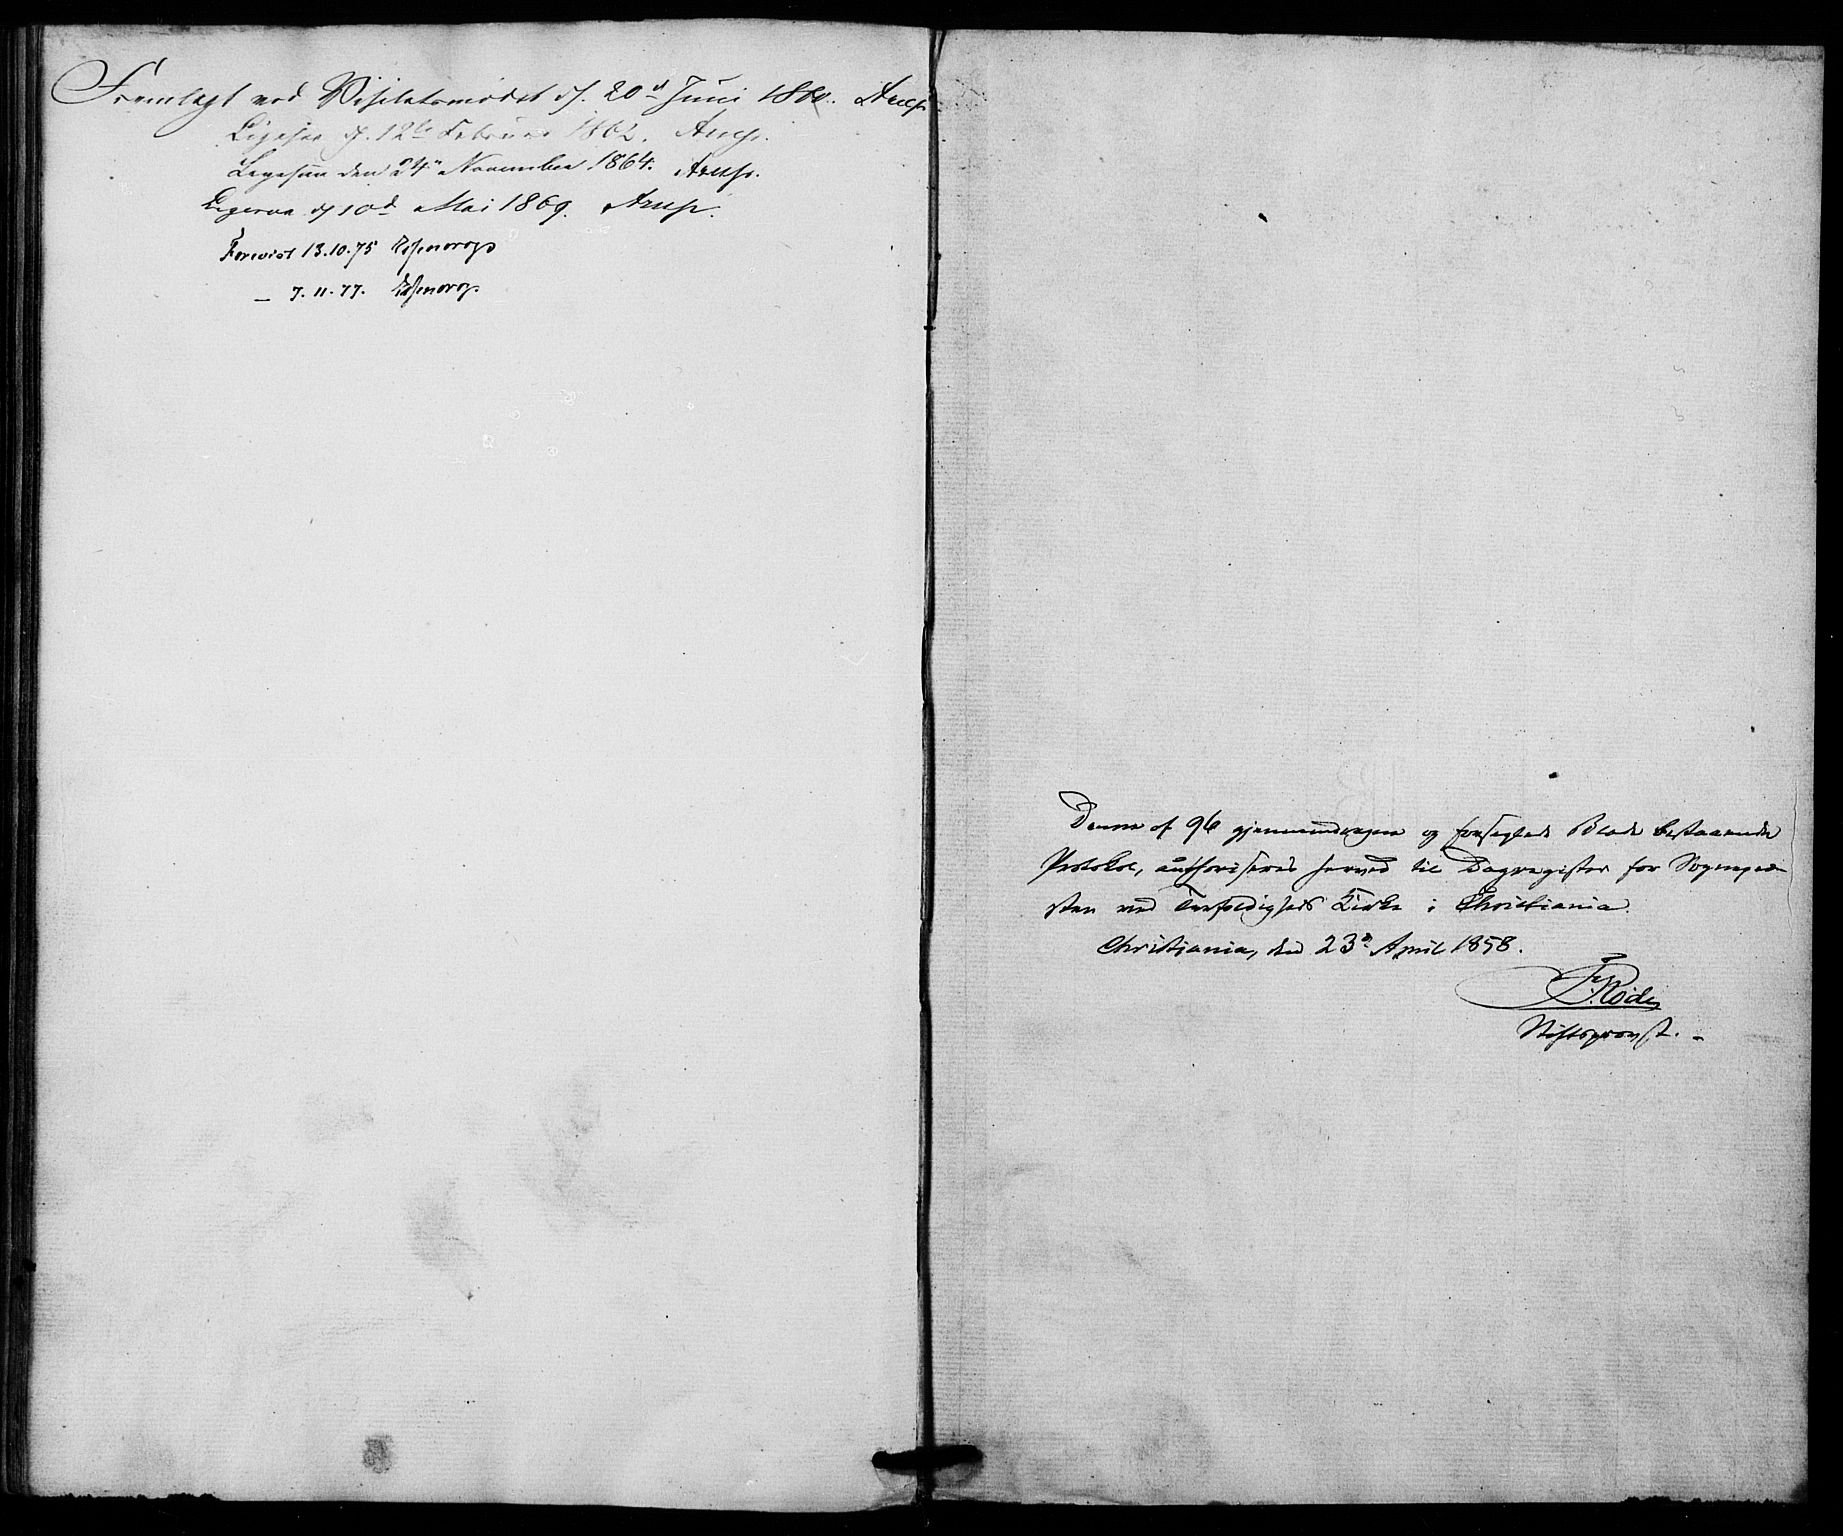 Fremlagt ved Visitatsmødet d. 20d Juni 1860. Arup
Ligesaa d. 12te Februar 1862. Arup.
Ligesaa den 24de November 1864. Arup.
Ligesaa d 10d Mai 1869. Arup.
Forevist 13.10.75 Essendrop
– 7.11.77. Essendrop.
Denne af 96 gjennemdragne og forseglede Blade bestaaende
Protokol, authoriseres herved til Dagregister for Sognepræ-
sten ved Trefoldigheds Kirke i Christiania.
Christiania, den 23d April 1858.
Fr. Rode
Stiftsprovst. –